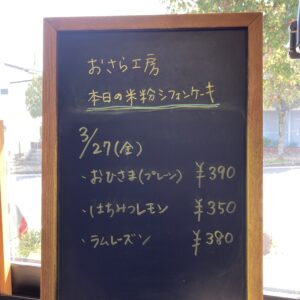 おさら工房
本日の米粉シフォンケーキ
3/27(金)
・おひさま(プレーン) ¥390
・はちみつレモン ¥350
・ラムレーズン ¥380